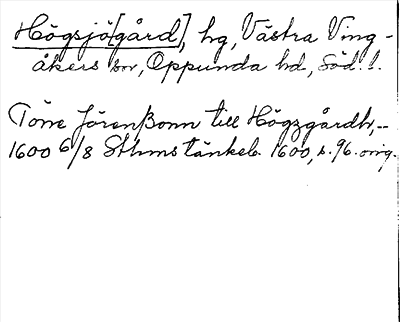 Högsjö[gård], hg, Västra Ving-
åkers sn, Oppunda hd, Söd. l.
Töne Jörenßonn till Högzgårdh,--
1600 6/8 Sthms tänkeb. 1600, s. 96. orig.